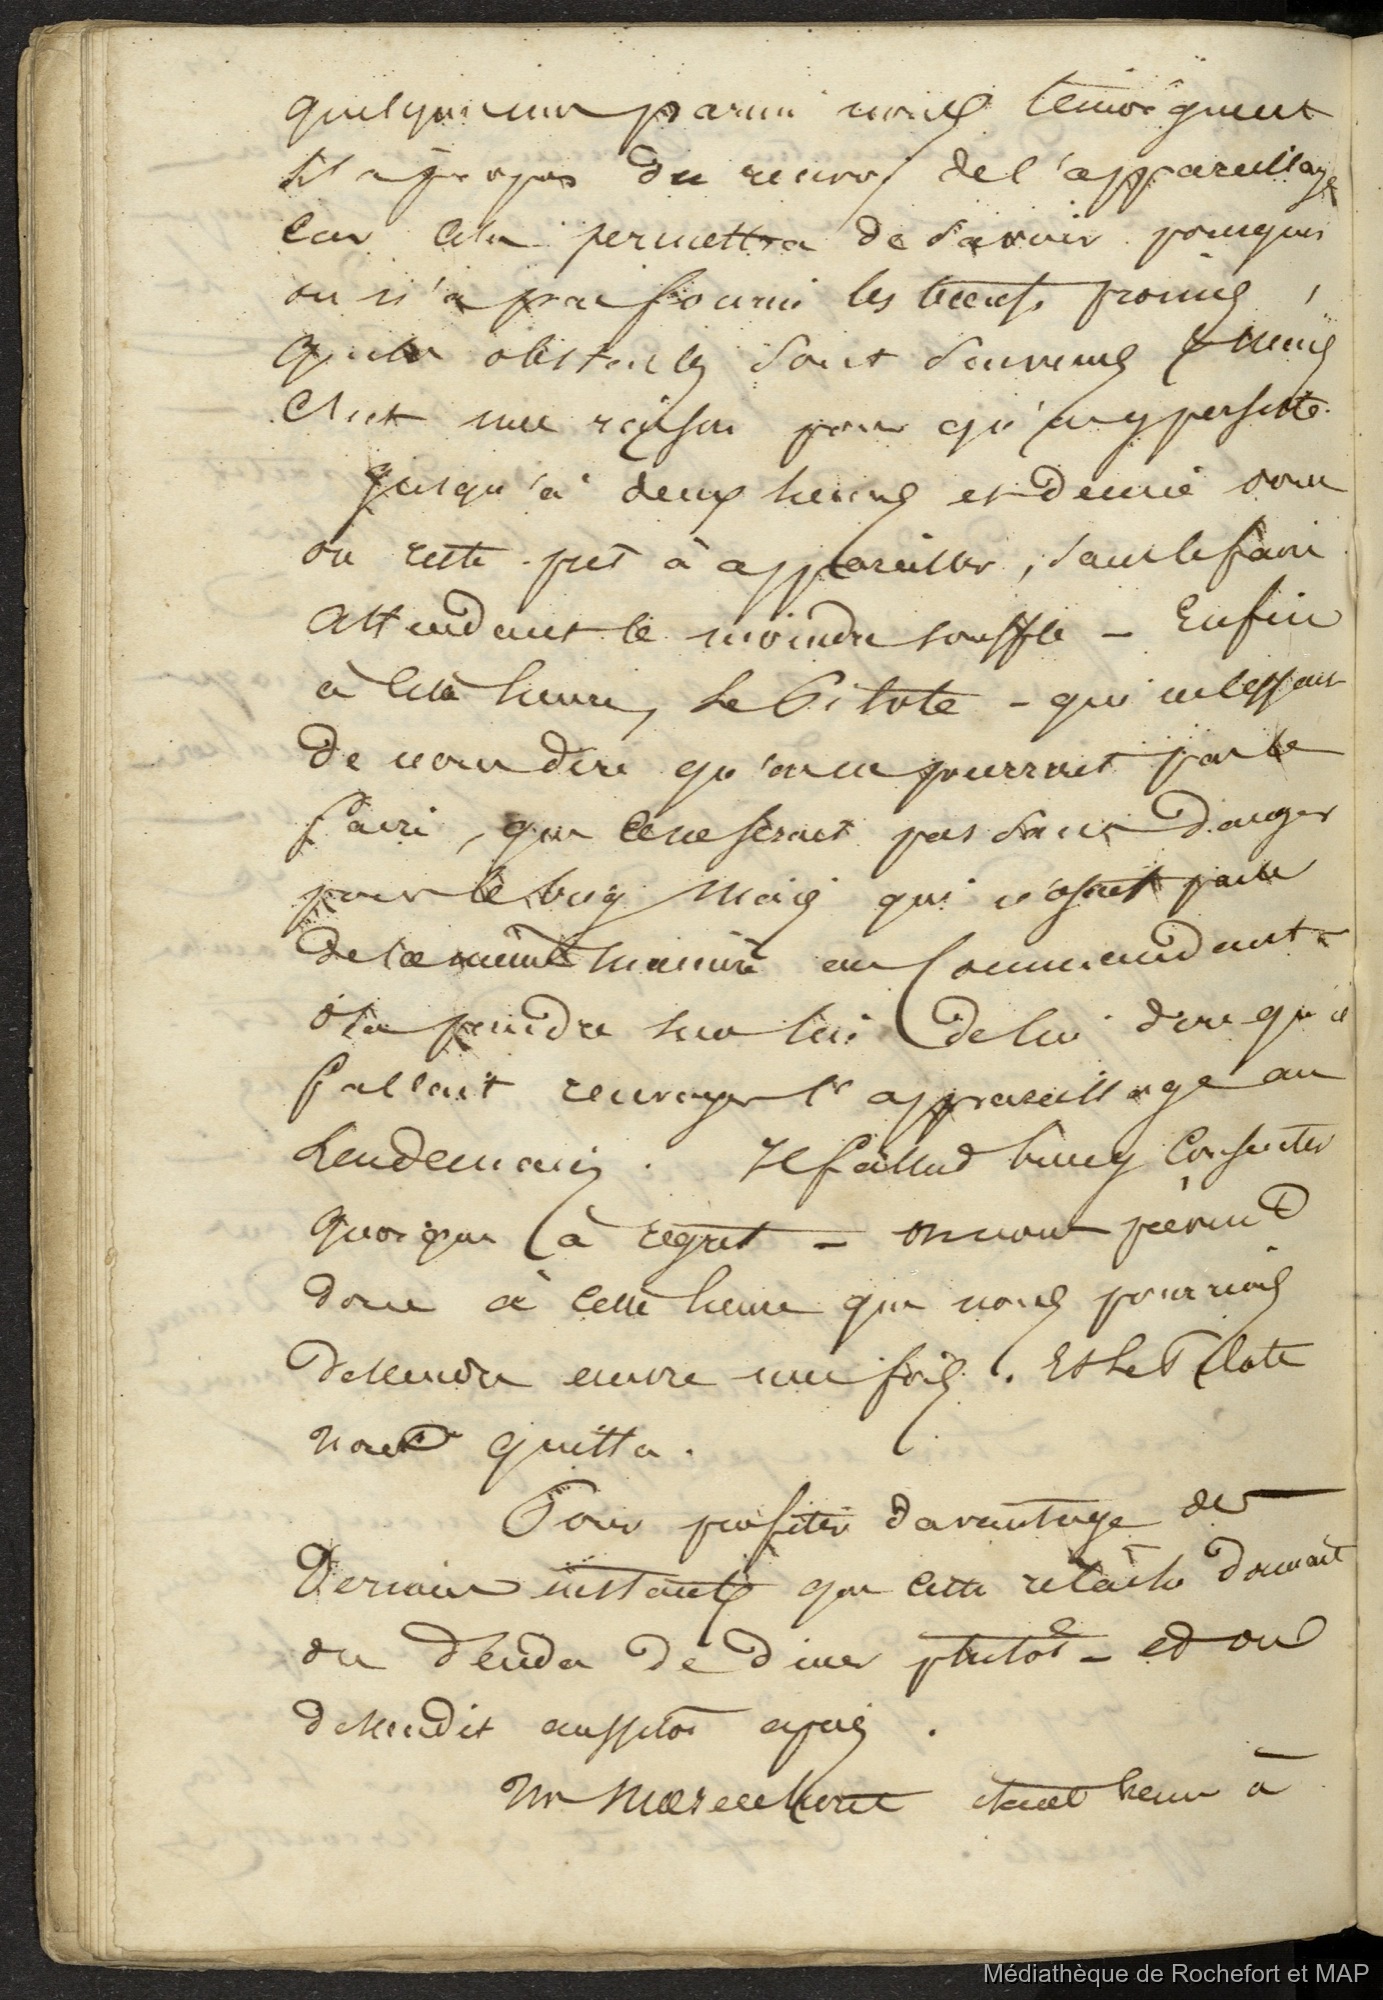 quelqu'un parmi nous témoignent
à propos du renvoi de l'appareillage
car cela permettra de savoir pourquoi
on n'a pas fourni les bœufs promis,
quels obstacles sont survenus & mais
c'est une raison pour qu'on y persiste.
Jusqu'à deux heures et demie nous
on reste prêt à appareiller, sans le faire
attendant le moindre souffle - Enfin
à cette heure, le Pilote - qui
de nous dire qu'on ne pourrait pas le
faire, que ce ne serait pas sans danger
pour le brig mais qui n'osait parler
de la même manière au Commandant -
osa prendre sur lui de lui dire qu'il
fallait renvoyer l'appareillage au
Lendemain. Il fallud bien y consentir
quoique à regret - on nous prévint
donc à cette heure que nous pourrions
descendre encore une fois. Et le Pilote
nous quitta.
Pour profiter davantage des
Derniers instants que cette relâche donnait
on décida de diner plutôt - et on
descendit aussitôt après.
Mr étant venu à
Médiathèque de Rochefort et MAP